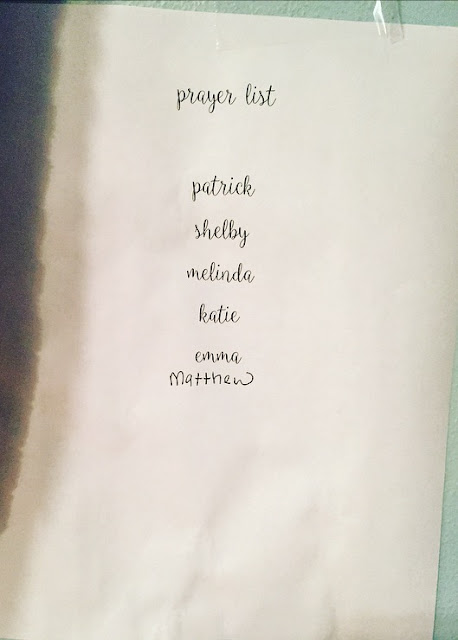 prayer list
patrick
shelby
melinda
katie
emma
Matthew